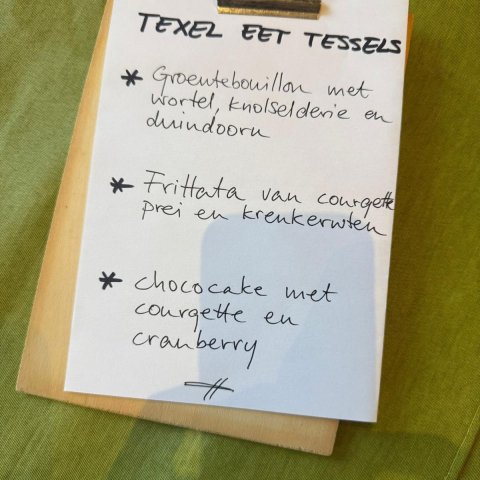 TEXEL EET TESSELS
* Groentebouillon met
wortel, knolselderie en
duindoorn
* Frittata van courgette
prei en krenkerwten
* chococake met
courgette en
cranberry